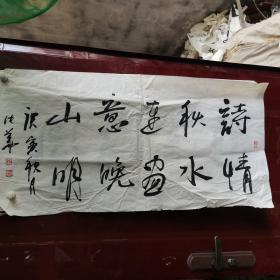 詩情
秋水
連畫
意晚
山明
庚寅秋月